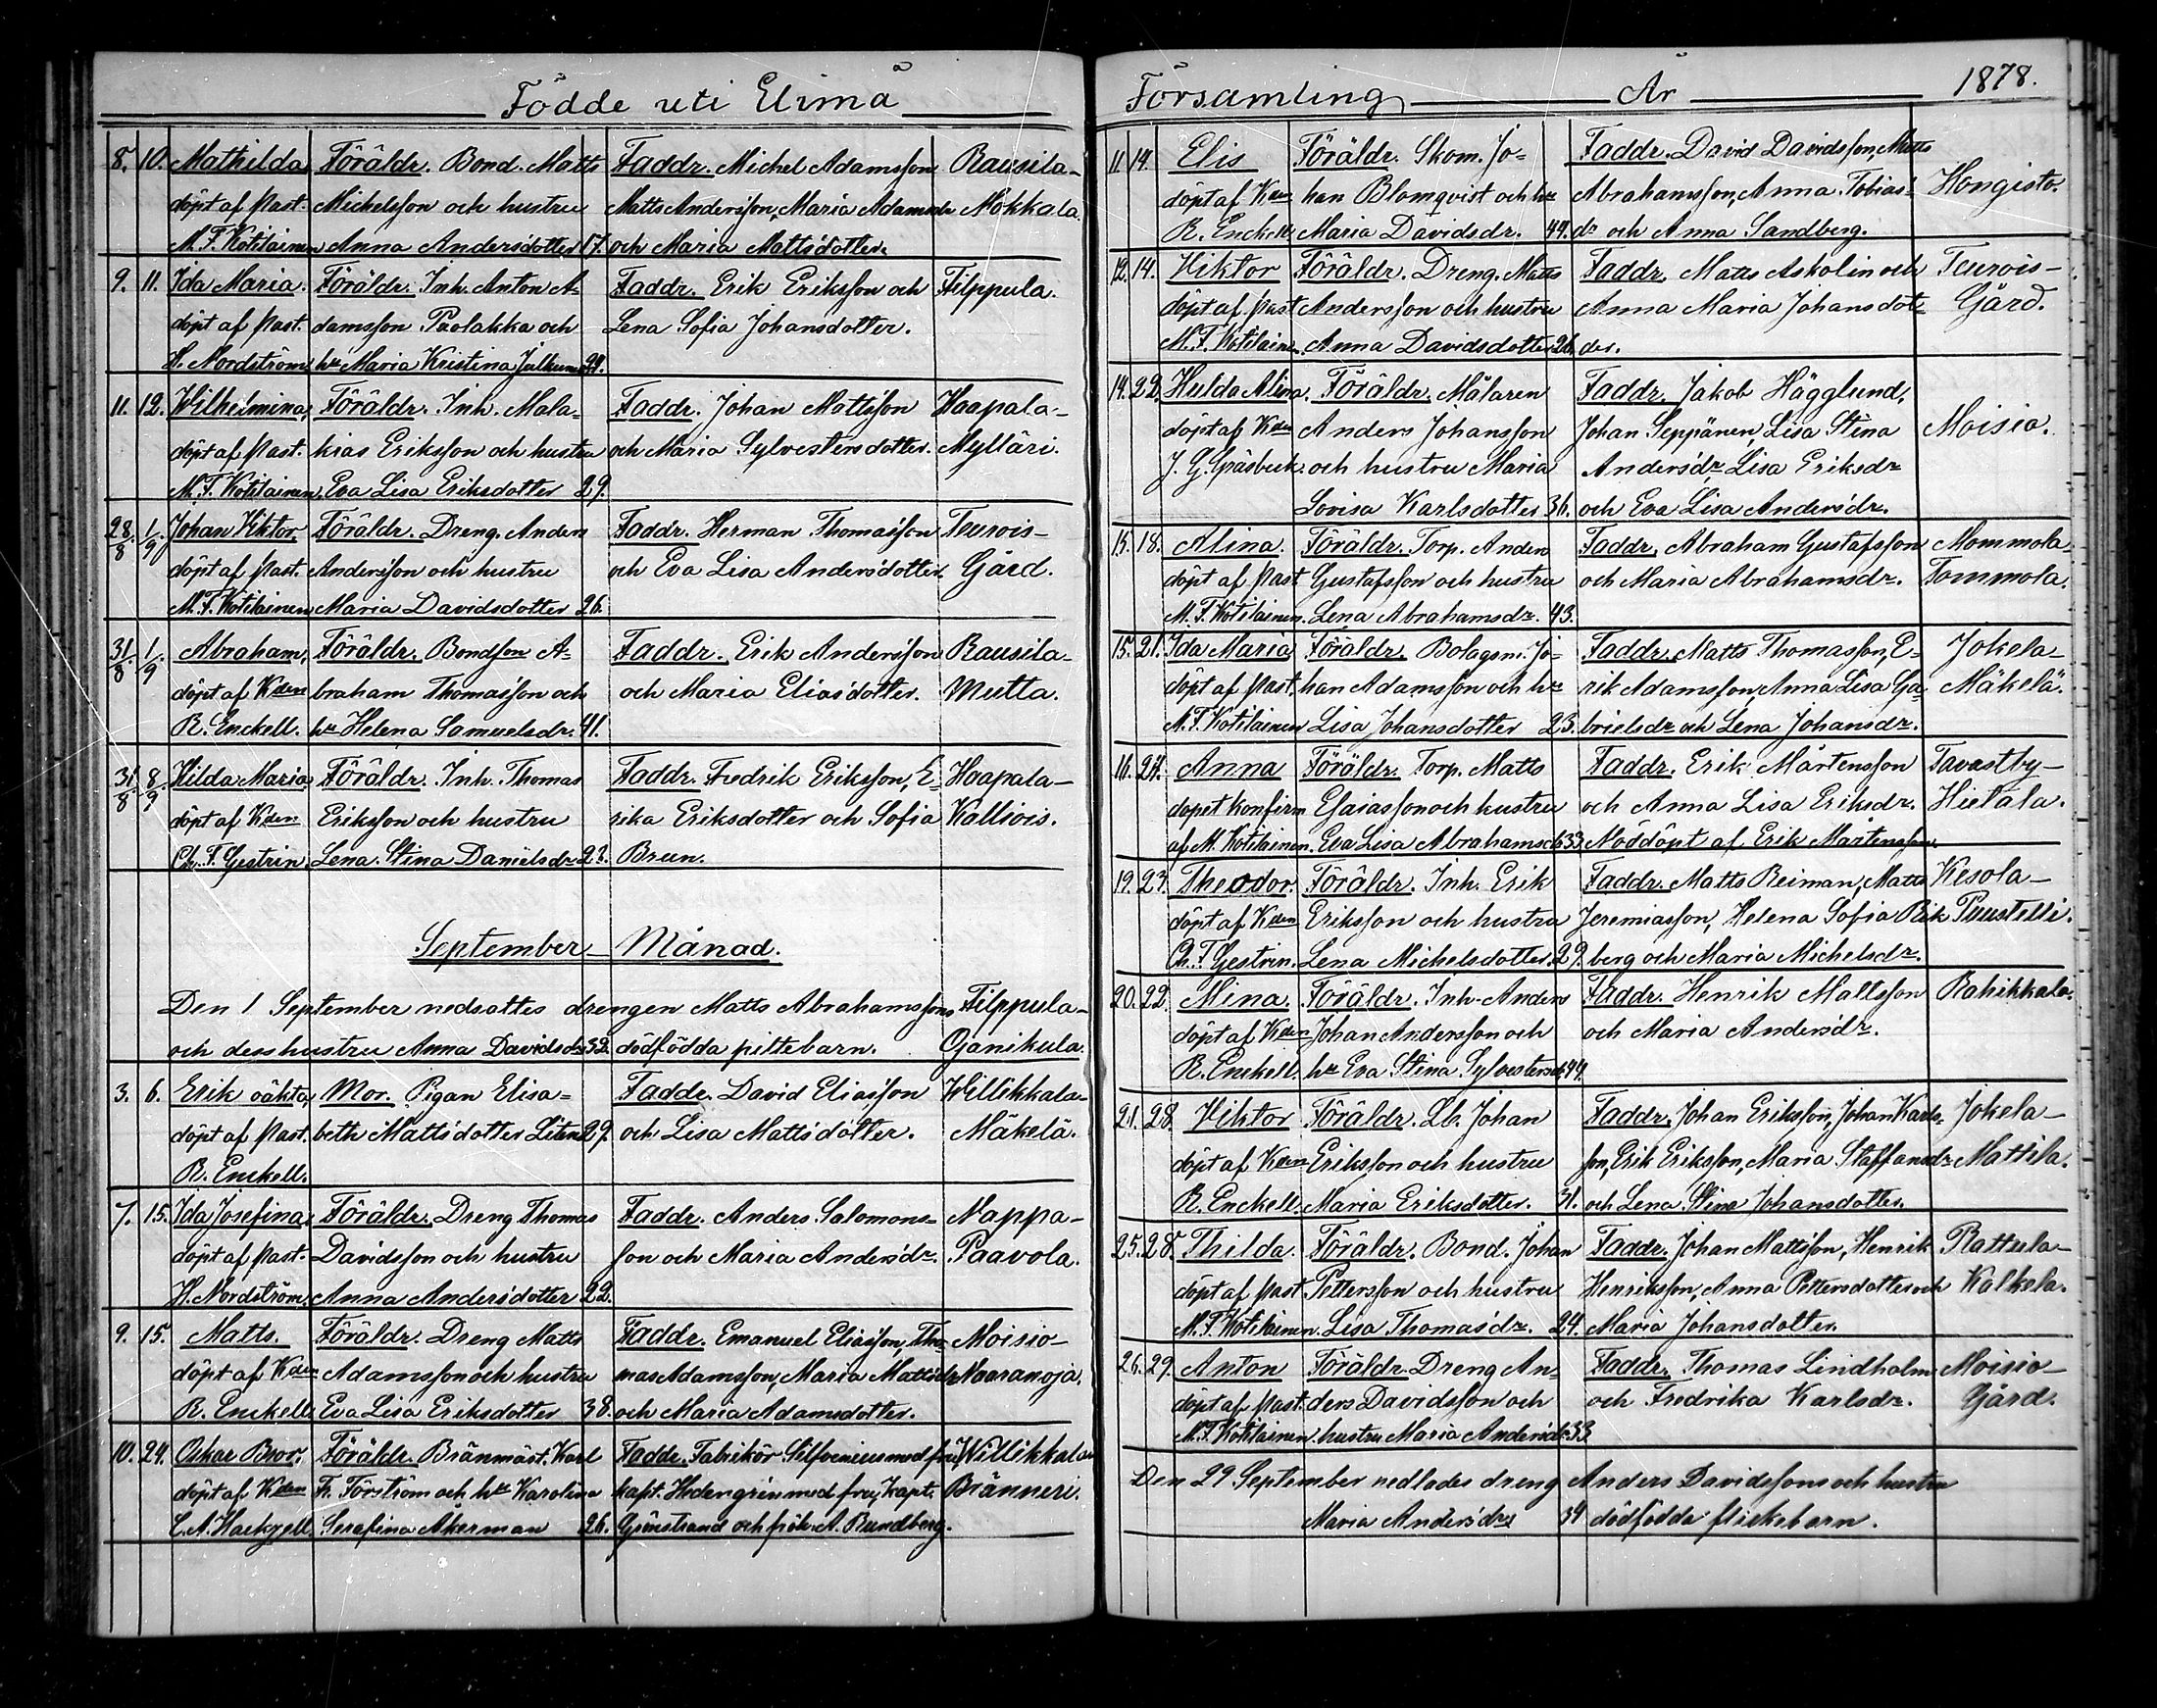 Födde uti Elimä
8. 10. Mathilda Föräldr. Bond. Matts Faddr. Michel Adamsson Rausila-
döpt af Past. Michelsson och hustru Matts Andersson, Maria Adamsdr Mökkala.
M. F. Kotilainen Anna Andersdotter 17. och Maria Mattsdotter.
9. 11. Ida Maria. Föräldr. Inh. Anton A- Faddr. Erik Eriksson och Filppula.
döpt af Past. damsson Paolakka och Lena Sofia Johansdotter.
H. Nordström hu Maria Kristina
11. 12. Wilhelmina, Föräldr. Inh. Mala- Faddr. Johan Mattsson Haapala-
döpt af Past. kias Eriksson och hustru och Maria Sylvestersdotter. Mylläri.
M. F. Kotilainen. Eva Lisa Eriksdotter 29.
28/8. 1/9. Johan Viktor. Föräldr. Dreng. Anders Faddr. Herman Thomasson Teurois-
döpt af Past. Andersson och hustru och Eva Lisa Andersdotter. Gård.
M. F. Kotilainen Maria Davidsdotter 26.
31/8. 1/9. Abraham, Föräldr. Bondson A- Faddr. Erik Andersson Rausila-
döpt af Kden braham Thomasson och och Maria Eliasdotter. Mutta.
R. Enckell. hu Helena Samuelsdr. 41.
31/8. 8/9. Hilda Maria, Föräldr. Inh. Thomas Faddr. Fredrik Eriksson, E- Haapala-
döpt af Kden Eriksson och hustru rika Eriksdotter och Sofia Kalliois.
Ch. F. Gestrin. Lena Stina Danielsdr 23. Brun.
September Månad.
Den 1 September nedsattes drengen Matts Abrahamssons Filppula-
och dess hustru Anna Davidsdr 32. dödfödda piltebarn. Ojanikula.
3. 6. Erik oäkta, Mor. Pigan Elisa- Faddr. David Eliasson Willikkala-
döpt af Past. beth Mattsdotter Liten 29. och Lisa Mattsdotter. Mäkelä.
R. Enckell.
7. 15. Ida Josefina, Föräldr. Dreng Thomas Faddr. Anders Salomons- Nappa-
döpt af Past. Davidsson och hustru son och Maria Andersdr. Paavola.
H. Nordström. Anna Andersdotter 22.
9. 15. Matts. Föräldr. Dreng Matts Faddr. Emanuel Eliasson, Tho- Moisio-
döpt af Kden Adamsson och hustru mas Adamsson, Maria Mattsdr Naaranoja.
R. Enckell Eva Lisa Eriksdotter 38. och Maria Adamsdotter.
10. 24. Oskar Bror, Föräldr. Brännmäst. Karl Faddr. Silfvenius med fru, Willikkala
döpt af Kden Fr. Förström och hu Karolina kapt. Hedengrén med fru, Kapt. Bränneri.
Serafina Åkerman 26. Grönstrand och frök. A. Bundberg.
Församling År 1878.
11. 14. Elis Föräldr. Skom. Jo- Faddr. David Davidsson, Matts
döpt af Kden han Blomqvist och hu Abrahamsson, Anna Tobias- Hongisto.
R. Enckell Maria Davidsdr. 44. dr och Anna Sandberg.
12. 14. Viktor Föräldr. Dreng. Matts Faddr. Matts Askolin och Teurois-
döpt af Past Andersson och hustru Anna Maria Johansdot- Gård.
M. F. Kotilainen. Anna Davidsdotter 26. ter.
14. 22. Hulda Alina. Föräldr. Målaren Faddr. Jakob Hägglund,
döpt af Kden Anders Johansson Johan Seppänen, Lisa Stina Moisio.
J. G. Gräsbeck. och hustru Maria Andersdr, Lisa Eriksdr
Lovisa Karlsdotter 36. och Eva Lisa Andersdr.
15. 18. Alina. Föräldr. Torp. Anders Faddr. Abraham Gustafsson Mommola-
döpt af Past Gustafsson och hustru och Maria Abrahamsdr. Tommola.
M. F. Kotilainen. Lena Abrahamsdr. 43.
15. 21. Ida Maria Föräldr. Bolagsm. Jo- Faddr. Matts Thomasson, E- Jokela-
döpt af Past. han Adamsson och hu rik Adamsson, Anna Lisa Ga- Mäkelä.
M. F. Kotilainen Lisa Johansdotter 23. brielsdr och Lena Johansdr.
16. 27. Anna Föräldr. Torp. Matts Faddr. Erik Mårtensson Tavastby-
dopet konfirm Esaiasson och hustru och Anna Lisa Eriksdr. Hietala.
af M. Kotilainen. Eva Lisa Abrahamsdr 33. Nöddöpt af Erik Mårtensson.
19. 23. Theodor. Föräldr. Inh. Erik Faddr. Matts Reiman, Matts Kesola-
döpt af Kden Eriksson och hustru Jeremiasson, Helena Sofia Rik Puustelli.
Ch. F. Gestrin. Lena Michelsdotter. 29. berg och Maria Michelsdr.
20. 22. Mina. Föräldr. Inh. Anders Faddr. Henrik Mattsson Rahikkala.
döpt af Kden Johan Andersson och och Maria Andersdr.
R. Enckell. hu Eva Stina Sylvestersdr. 44.
21. 28. Viktor Föräldr. Lb. Johan Faddr. Johan Eriksson, Johan Karls- Jokela-
döpt af Kden Eriksson och hustru son, Erik Eriksson, Maria Staffansdr Mattila.
R. Enckell Maria Eriksdotter. 31. och Lena Stina Johansdotter.
25. 28. Thilda. Föräldr. Bond. Johan Faddr. Johan Mattsson, Henrik Rattula-
döpt af Past. Pettersson och hustru Henriksson, Anna Pettersdotter och Kalkela.
M. F. Kotilainen. Lisa Thomasdr. 24. Maria Johansdotter.
26. 29. Anton Föräldr. Dreng An- Faddr. Thomas Lindholm Moisio-
döpt af Past. ders Davidsson och och Fredrika Karlsdr. Gård.
M. F. Kotilainen. hustru Maria Andersdr. 33
Den 29 September nedlades dreng Anders Davidssons och hustru
Maria Andersdrs 34 dödfödda flickebarn.